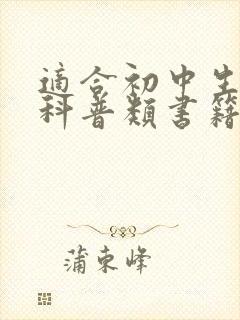 適合初中生
科普類書籍
蒲東峰